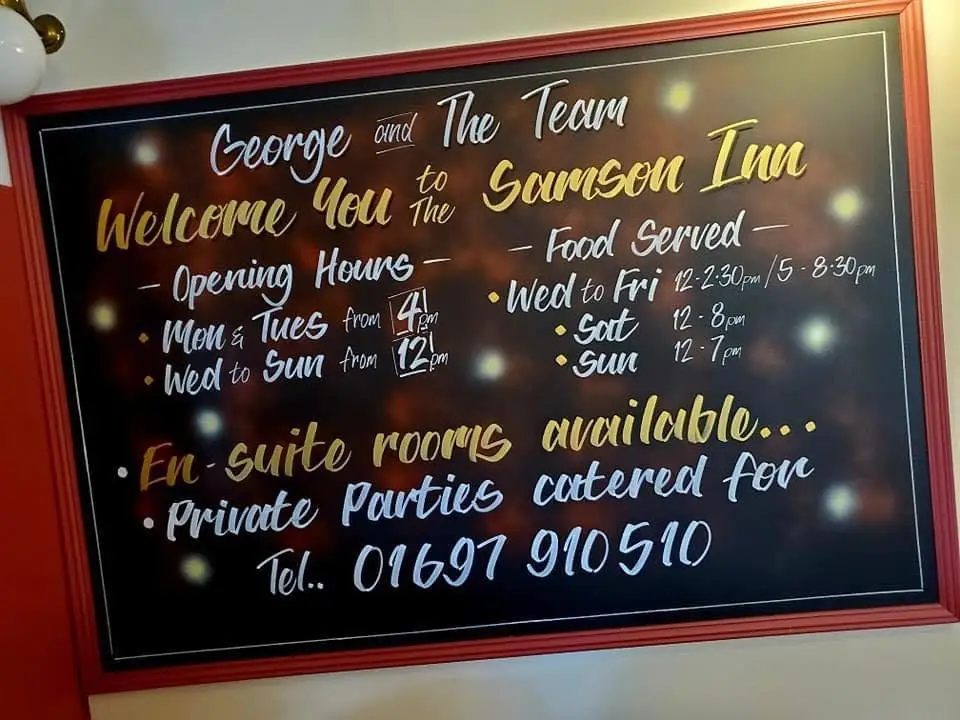 George and The Team
Welcome You to The Samson Inn
- Opening Hours -
• Mon & Tues from 4pm
• Wed to Sun from 12pm
- Food Served -
• Wed to Fri 12-2.30pm/5-8.30pm
• Sat 12-8pm
• Sun 12-7pm
• En-suite rooms available...
• Private Parties catered for
Tel.. 01697 910510